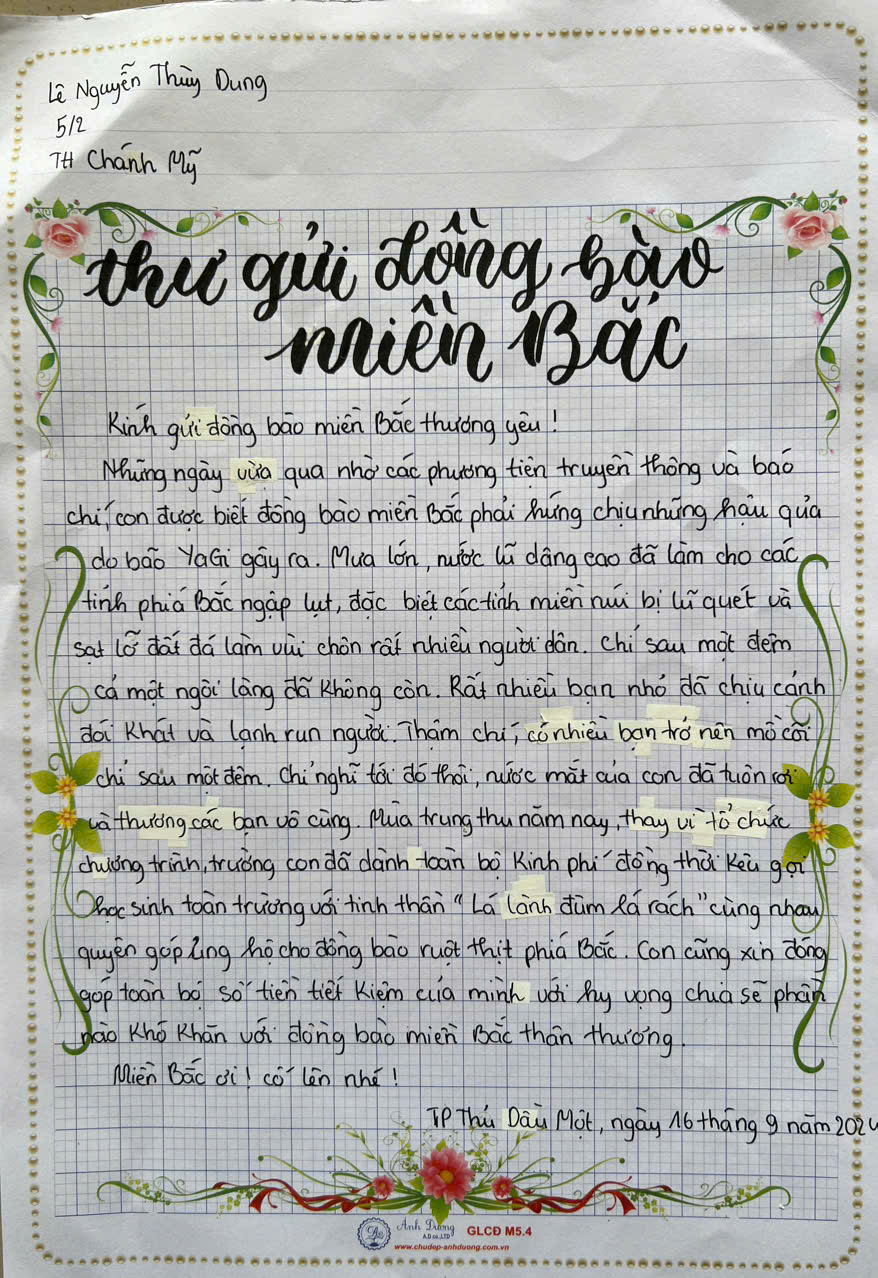 Lê Nguyễn Thùy Dung
5/2
TH Chánh Mỹ
thư gửi đồng bào
miền Bắc
Kính gửi đồng bào miền Bắc thương yêu !
Những ngày vừa qua nhờ các phương tiện truyền thông và báo
chí, con được biết đồng bào miền Bắc phải hứng chịu những hậu quả
do bão YaGi gây ra. Mưa lớn, nước lũ dâng cao đã làm cho các
tỉnh phía Bắc ngập lụt, đặc biệt các tỉnh miền núi bị lũ quét và
sạt lở đất đá làm vùi chôn rất nhiều người dân. Chỉ sau một đêm
cả một ngôi làng đã không còn. Rất nhiều bạn nhỏ đã chịu cảnh
đói khát và lạnh run người. Thậm chí, có nhiều bạn trở nên mồ côi
chỉ sau một đêm. Chỉ nghĩ tới đó thôi, nước mắt của con đã tuôn rơi
và thương các bạn vô cùng. Mùa trung thu năm nay, thay vì tổ chức
chương trình, trường con đã dành toàn bộ kinh phí đồng thời kêu gọi
học sinh toàn trường với tinh thần "Lá lành đùm lá rách" cùng nhau
quyên góp ủng hộ cho đồng bào ruột thịt phía Bắc. Con cũng xin đóng
góp toàn bộ số tiền tiết kiệm của mình với hy vọng chia sẽ phần
nào khó khăn với đồng bào miền Bắc thân thương.
Miền Bắc ơi ! cố lên nhé !
TP Thủ Dầu Một, ngày 16 tháng 9 năm 2024
Ánh Dương
A.D co.,LTD
GLCĐ M5.4
www.chudep-anhduong.com.vn